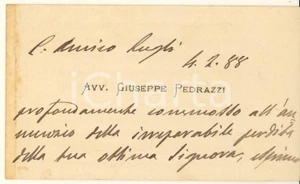 C. Amico Lugli
4.2.88
AVV. GIUSEPPE PEDRAZZI
profondamente commosso all'an
nunzio della irreparabile perdita
della tua ottima signora,